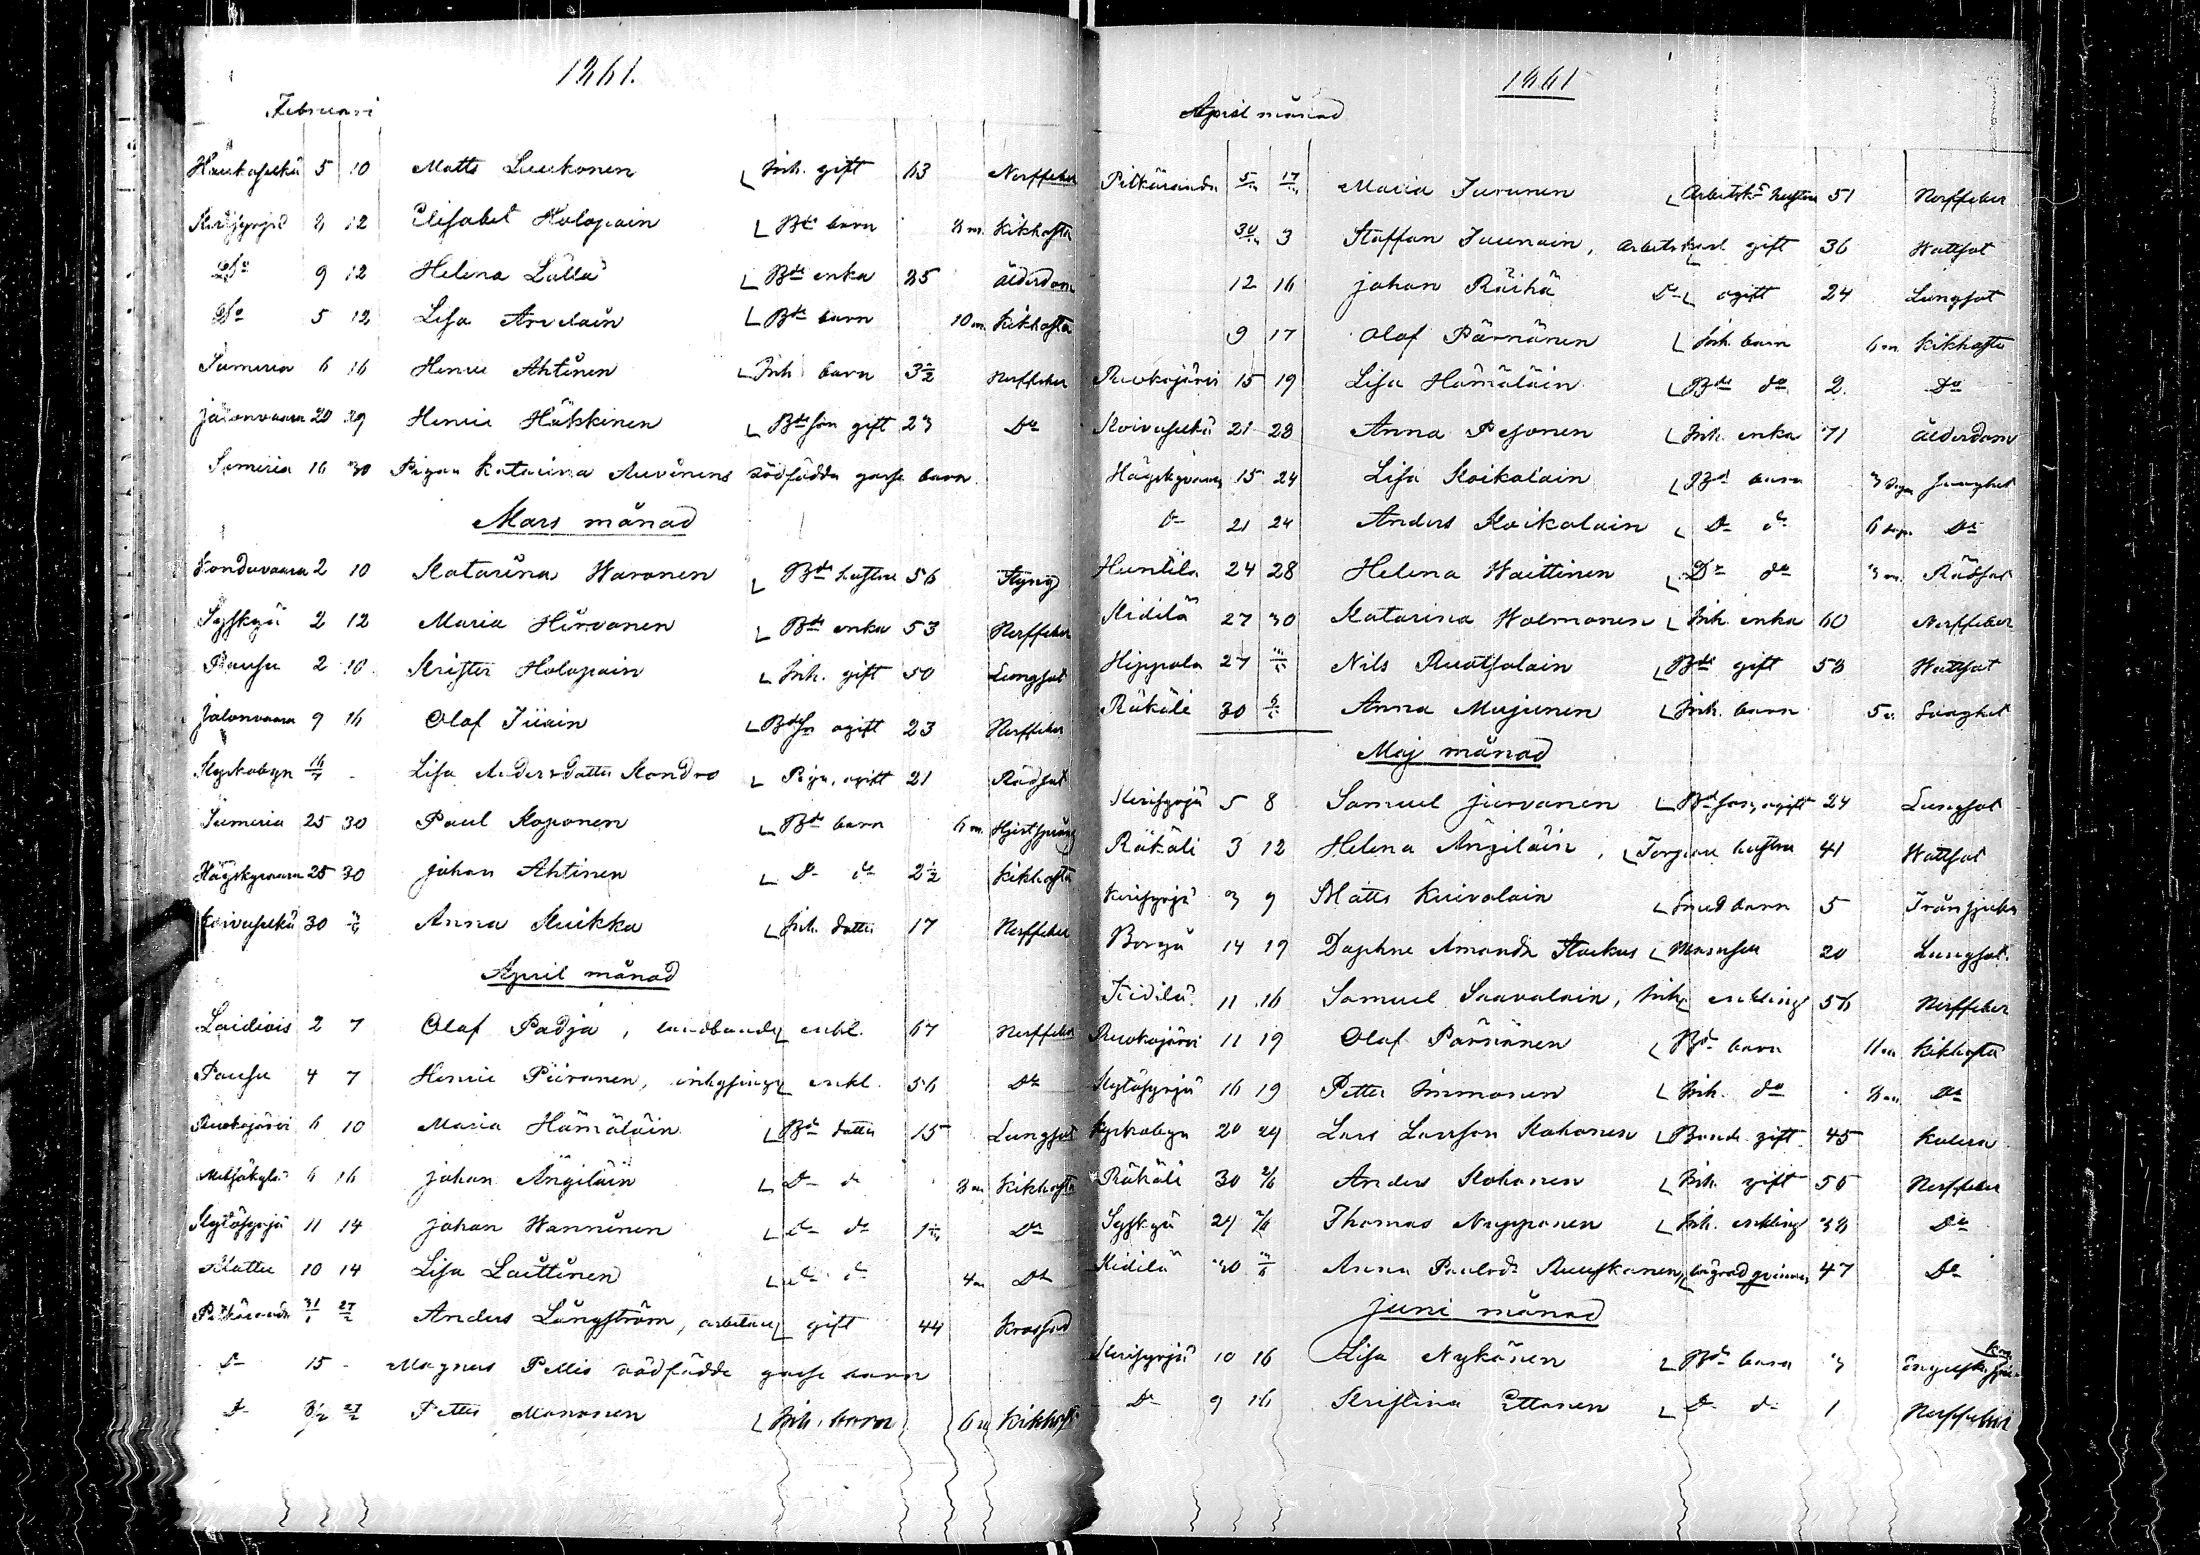 1861.
Februari
Haukaselkä 5 10 Matts Luukonen Inh. gift 63 Nerffeber
12 Elisabet Holopain Bde barn 8 m. Kikhosta
Do 9 12 Helena Lälla Bde enka 85 ålderdom
Do 5 12 Lisa Bde barn 10 m. Kikhosta
Sumeria 6 16 Henric Ahtinen Inh. barn 3½ Nerffeber
Jalonvaara 20 29 Henric Häkkinen Bde son gift 23 Do
Sumeria 16 30 Pigan Katarina Auvinens dödfödda gosse barn
Mars månad
Konduvaara 2 10 Katarina Waronen Bde hustru 56 Styng
Syskyä 2 12 Maria Hirvonen Bde enka 53 Nerffeber
Pausu 2 10 Krister Holopain Inh. gift 50 Lungsot
Jalonvaara 9 16 Olof Iivain Bdeson ogift 23 Nerffeber
Kyrkobyn Lisa Andersdotter Kondro Piga, ogift 21 Rödsot
Sumeria 25 30 Paul Koponen Bde barn 6 m. Hjertsprång
Häyskyvaara 25 30 Johan Ahtinen Do do 2½ Kikhosta
Koivuselkä 30 Anna Kuikka Inh. dotter 17 Nerffeber
April månad
2 7 Olof Padja, landbonde enkl. 67 Nerffeber
Pausu 4 7 Henric Piironen, inhysing enkl. 56 Do
Ruokojärvi 6 10 Maria Hämäläin Bde dotter 15 Lungsot
Metsäkylä 6 16 Johan Ängiläin Do do 8 m Kikhosta
Kytösyrjä 11 14 Johan Wanninen Do do Do
Klattu 10 14 Lisa Laittinen Do do 4 m Do
Pitkäranda 31/1 27/2 Anders Långström, arbetare gift 44 Krossad
Do 15 - Magnus Pellis dödfödde gosse barn
Do 27/2 Petter Mononen Inh. barn 6 m Kikhosta
1861
April månad
Pitkäranda Maria Turunen Arbetsk. hustru 51 Nerffeber
3 Staffan Juunain, arbetskarl gift 36 Wattsot
12 16 Johan Räihä Do ogift 24 Lungsot
9 17 Olof Pärnänen Inh. barn 6 m. Kikhosta
Ruokojärvi 15 19 Lisa Hämäläin Bde do 2 Do
Koivuselkä 21 23 Anna Pesonen Inh. enka 71 ålderdom
Häyskyvaara 15 24 Lisa Koikalain Bde barn 3 dagar Svaghet
Do 21 24 Anders Koikalain Do do 6 dagar Do
Huntila 24 28 Helena Waittinen Do do 3 m. Rödsot
Kidilä 27 30 Katarina Wolmonen Inh. enka 60 Nerffeber
Hippola 27 Nils Ruotsalain Bde gift 58 Wattsot
Räkäli 30 Anna Mujunen Inh. barn 5 Svaghet
Maj månad
Kerisyrjä 5 8 Samuel Jurvanen Bde son, ogift 24 Lungsot
Räkäli 3 12 Helena Ängiläin, Torpare hustru 41 Wattsot
Kerisyrjä 3 9 Matts Kuivalain Smed barn 5 Trånsjuka
Borgå 14 19 Daphne Amanda Mamsell 20 Lungsot
11 16 Samuel Saavalain, Inh. enkling 56 Nerffeber
Ruokojärvi 11 19 Olof Pärnänen Bde barn 11 m Kikhosta
Kytösyrjä 16 19 Petter Immonen Inh. do 8 m Do
Kyrkobyn 20 29 Lars Larsson Kohonen Bonde gift 45 Kolera
Räkäli 30 2/6 Anders Kohonen Inh. gift 55 Nerffeber
Syskyä 29 2/6 Thomas Nupponen Inh. enkling 38 Do
Kidilä 30 Anna Paulsdr Ruuskanen lägrad qvinna 47 Do
Juni månad
Kerisyrjä 10 16 Lisa Nykänen Bde barn 3 Engelska sjuk.
Do 9 16 Kristina Ettonen Do do 1 Nerffeber